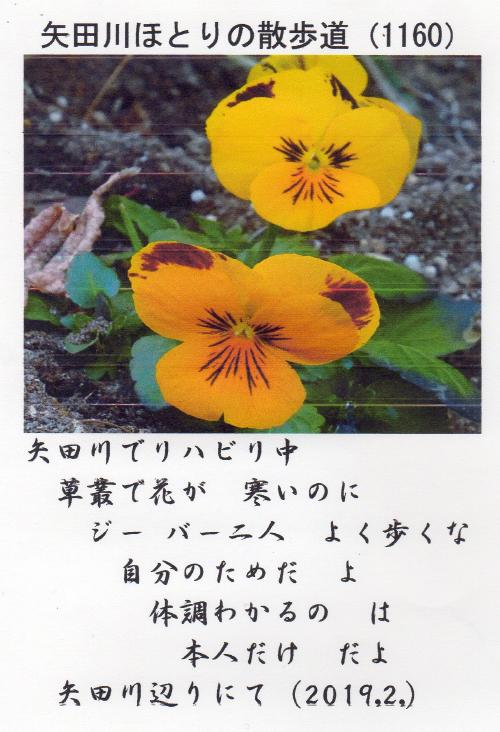 矢田川ほとりの散歩道（1160）
矢田川でリハビリ中
草叢で花が　寒いのに
ジー バー二人　よく歩くな
自分のためだ　よ
体調わかるの　は
本人だけ　だよ
矢田川辺りにて（2019,2,）